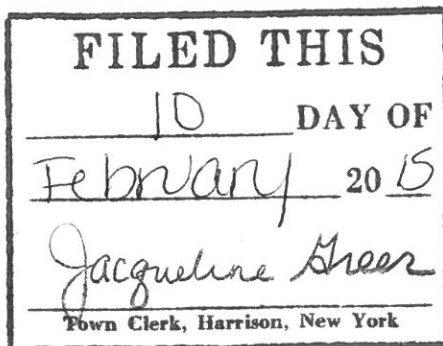 FILED THIS
10 DAY OF
February 20 15
Jacqueline Greer
Town Clerk, Harrison, New York